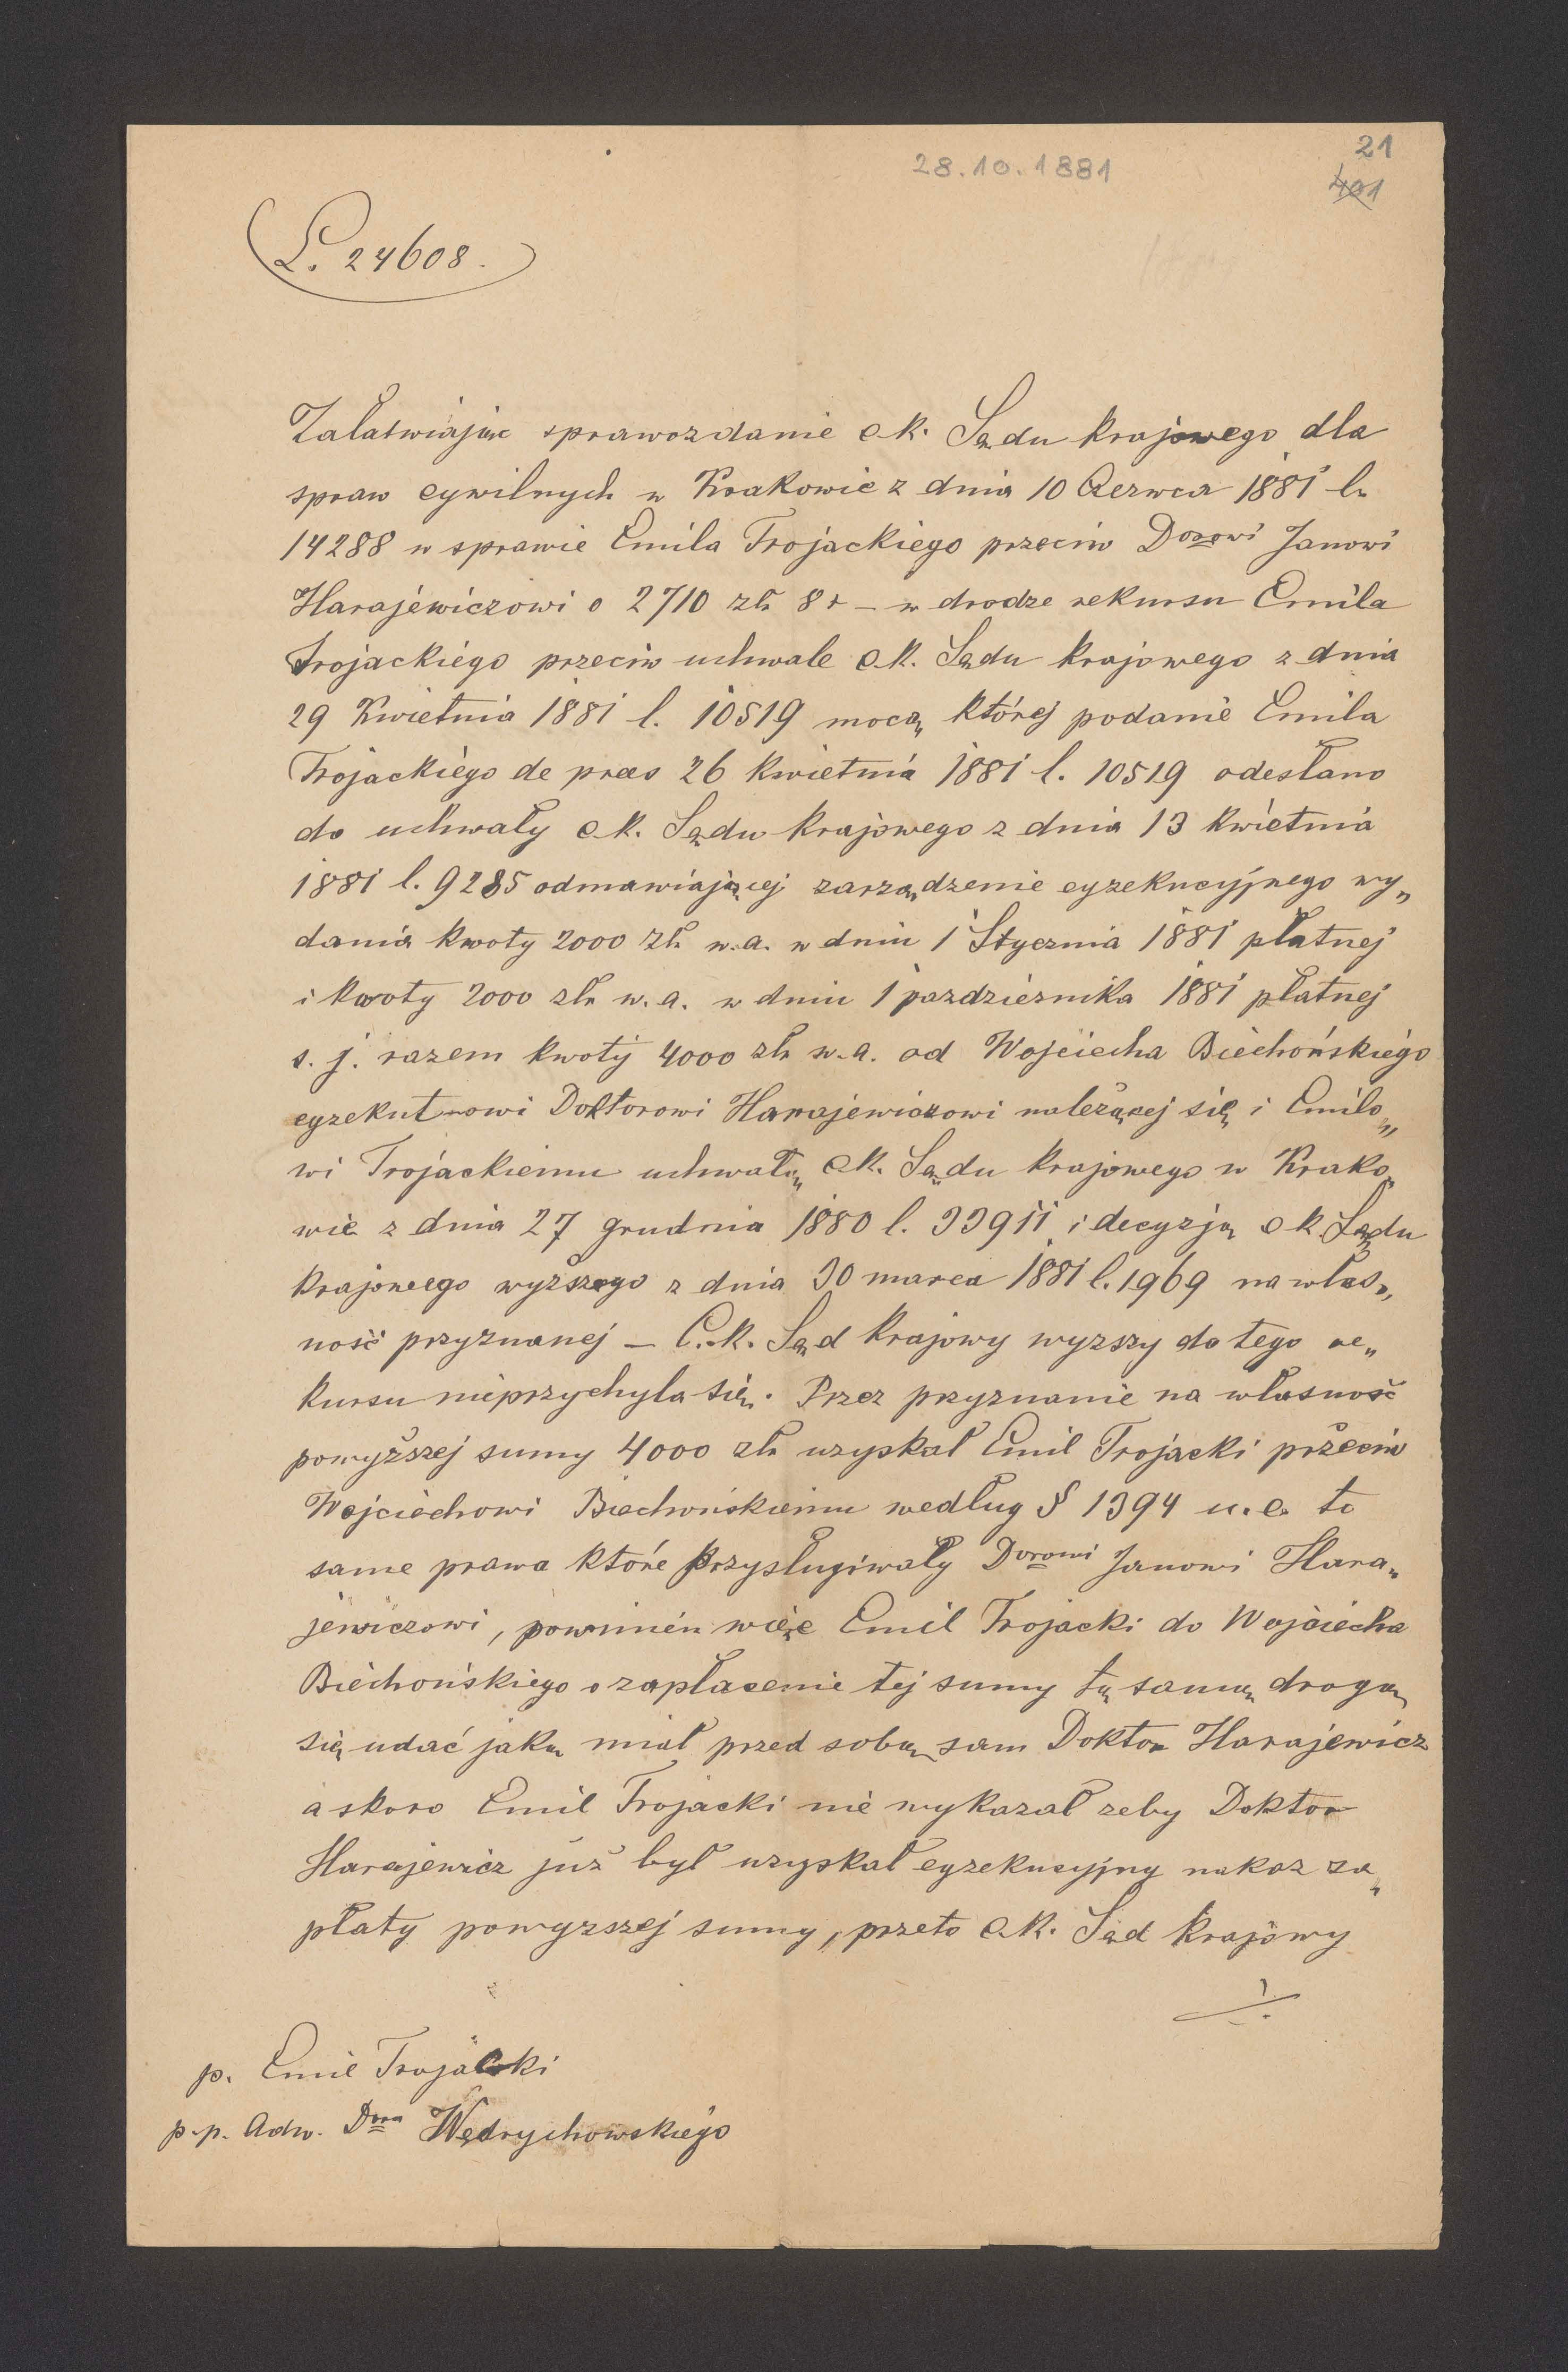 28.10.1881
21
401
L. 24608.
Załatwiając sprawozdanie c.k. Sądu krajowego dla
spraw cywilnych w Krakowie z dnia 10 Czerwca 1881 l.
14288 w sprawie Emila Trojackiego przeciw Dorowi Janowi
Harajewiczowi o 2710 złr 8 r – w drodze rekursu Emila
Trojackiego przeciw uchwale c.k. Sądu krajowego z dnia
29 Kwietnia 1881 l. 10519 mocą której podanie Emila
Trojackiego de praes 26 kwietnia 1881 l. 10519 odesłano
do uchwały c.k. Sądu krajowego z dnia 13 kwietnia
1881 l. 9285 odmawiającej zarządzenie egzekucyjnego wy„
dania kwoty 2000 złr w.a. w dniu 1 Stycznia 1881 płatnej
i kwoty 2000 złr w.a. w dniu 1 pazdziernika 1881 płatnej
t. j. razem kwoty 4000 złr w.a. od Wojciecha Biechońskiego
egzekutrowi Doktorowi Harajewiczowi należącej się i Emilo„
wi Trojackiemu uchwałą c.k. Sądu krajowego w Krako„
wie z dnia 27 grudnia 1880 l. 33911 i decyzją c.k. Sądu
krajowego wyższego z dnia 30 marca 1881 l. 1969 na włas„
ność przyznanej – C.k. Sąd krajowy wyzszy do tego re„
kursu nieprzychyla się. Przez przyznanie na własność
powyższej sumy 4000 złr uzyskał Emil Trojacki przeciw
Wojciechowi Biechońskiemu według § 1394 u.c. te
same prawa które przysługiwały Dorowi Janowi Hara„
jewiczowi, powinien więc Emil Trojacki do Wojciecha
Biechońskiego o zapłacenie tej sumy tą samą drogą
się udać jaką miał przed sobą sam Doktor Harajewicz
a skoro Emil Trojacki nie wykazał zeby Doktor
Harajewicz już był uzyskał egzekucyjny nakaz za„
płaty powyzszej sumy, przeto c.k. Sąd krajowy
./.
p. Emil Trojacki
p.p. Adw. Dora Wędrychowskiego